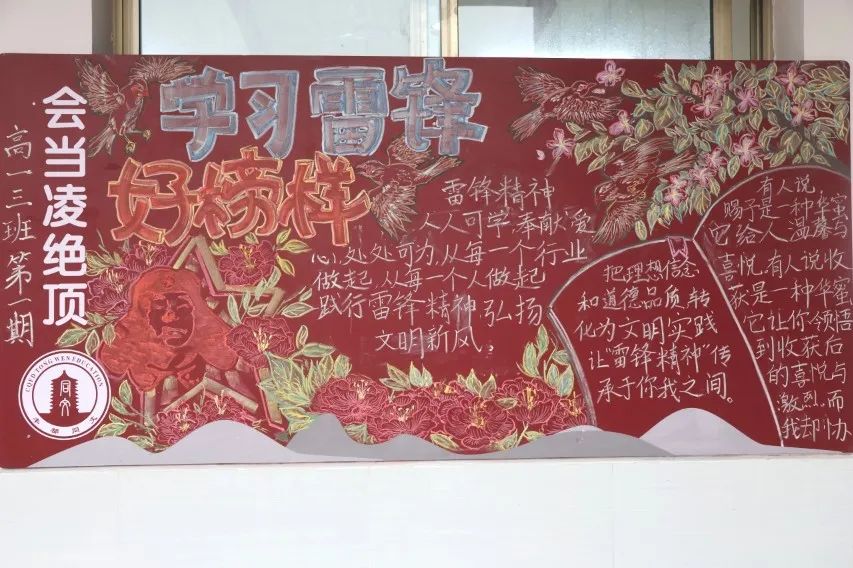 会当凌绝顶
高一三班第一期
学习雷锋
好榜样
雷锋精神
人人可学,奉献爱
心,处处可为,从每一个行业
做起,从每一个人做起
践行雷锋精神,弘扬
文明新风。
把理想信念
和道德品质转
化为文明实践
让“雷锋精神”传
承于你我之间。
有人说,
赐予是一种华蜜
它给人温馨与
喜悦,有人说收
获是一种华蜜
它让你领悟
到收获后
的喜悦与
激烈,而
我却
TONG WEN EDUCATION